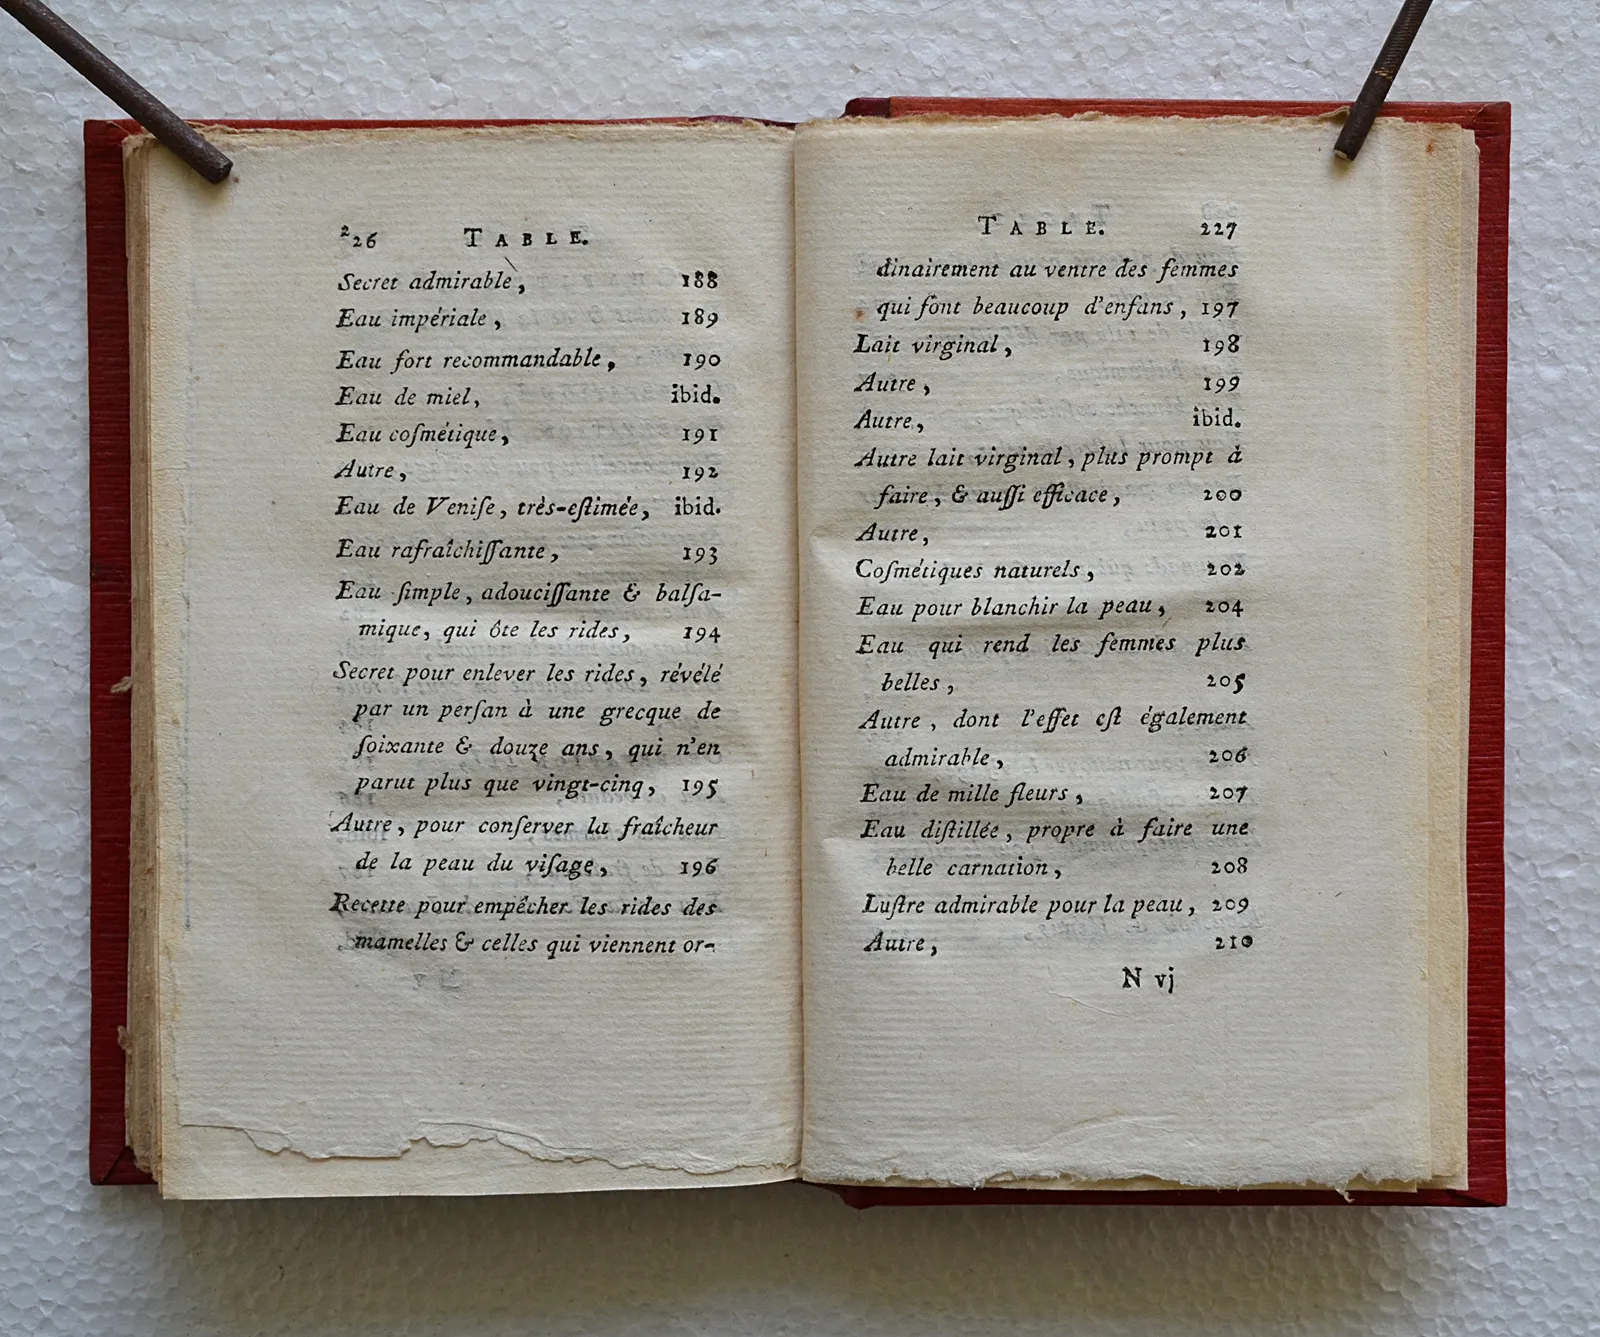 226 TABLE.
Secret admirable, 188
Eau impériale, 189
Eau fort recommandable, 190
Eau de miel, ibid.
Eau coſmétique, 191
Autre, 192
Eau de Veniſe, très-eſtimée, ibid.
Eau rafraîchiſſante, 193
Eau ſimple, adouciſſante & balſa-
mique, qui ôte les rides, 194
Secret pour enlever les rides, révélé
par un perſan à une grecque de
ſoixante & douze ans, qui n'en
parut plus que vingt-cinq, 195
Autre, pour conſerver la fraîcheur
de la peau du viſage, 196
Recette pour empêcher les rides des
mamelles & celles qui viennent or-
TABLE. 227
dinairement au ventre des femmes
qui font beaucoup d'enfans, 197
Lait virginal, 198
Autre, 199
Autre, ibid.
Autre lait virginal, plus prompt à
faire, & auſſi efficace, 200
Autre, 201
Coſmétiques naturels, 202
Eau pour blanchir la peau, 204
Eau qui rend les femmes plus
belles, 205
Autre, dont l'effet eſt également
admirable, 206
Eau de mille fleurs, 207
Eau diſtillée, propre à faire une
belle carnation, 208
Luſtre admirable pour la peau, 209
Autre, 210
N vj